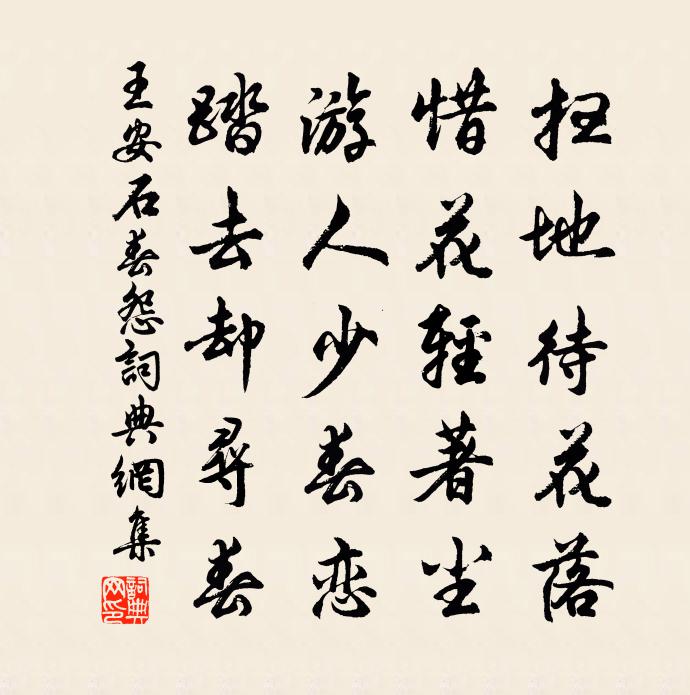 扫地待花落
惜花輕著尘
游人少春恋
踏去却尋春
王安石春怨詞典網集
詞典网印